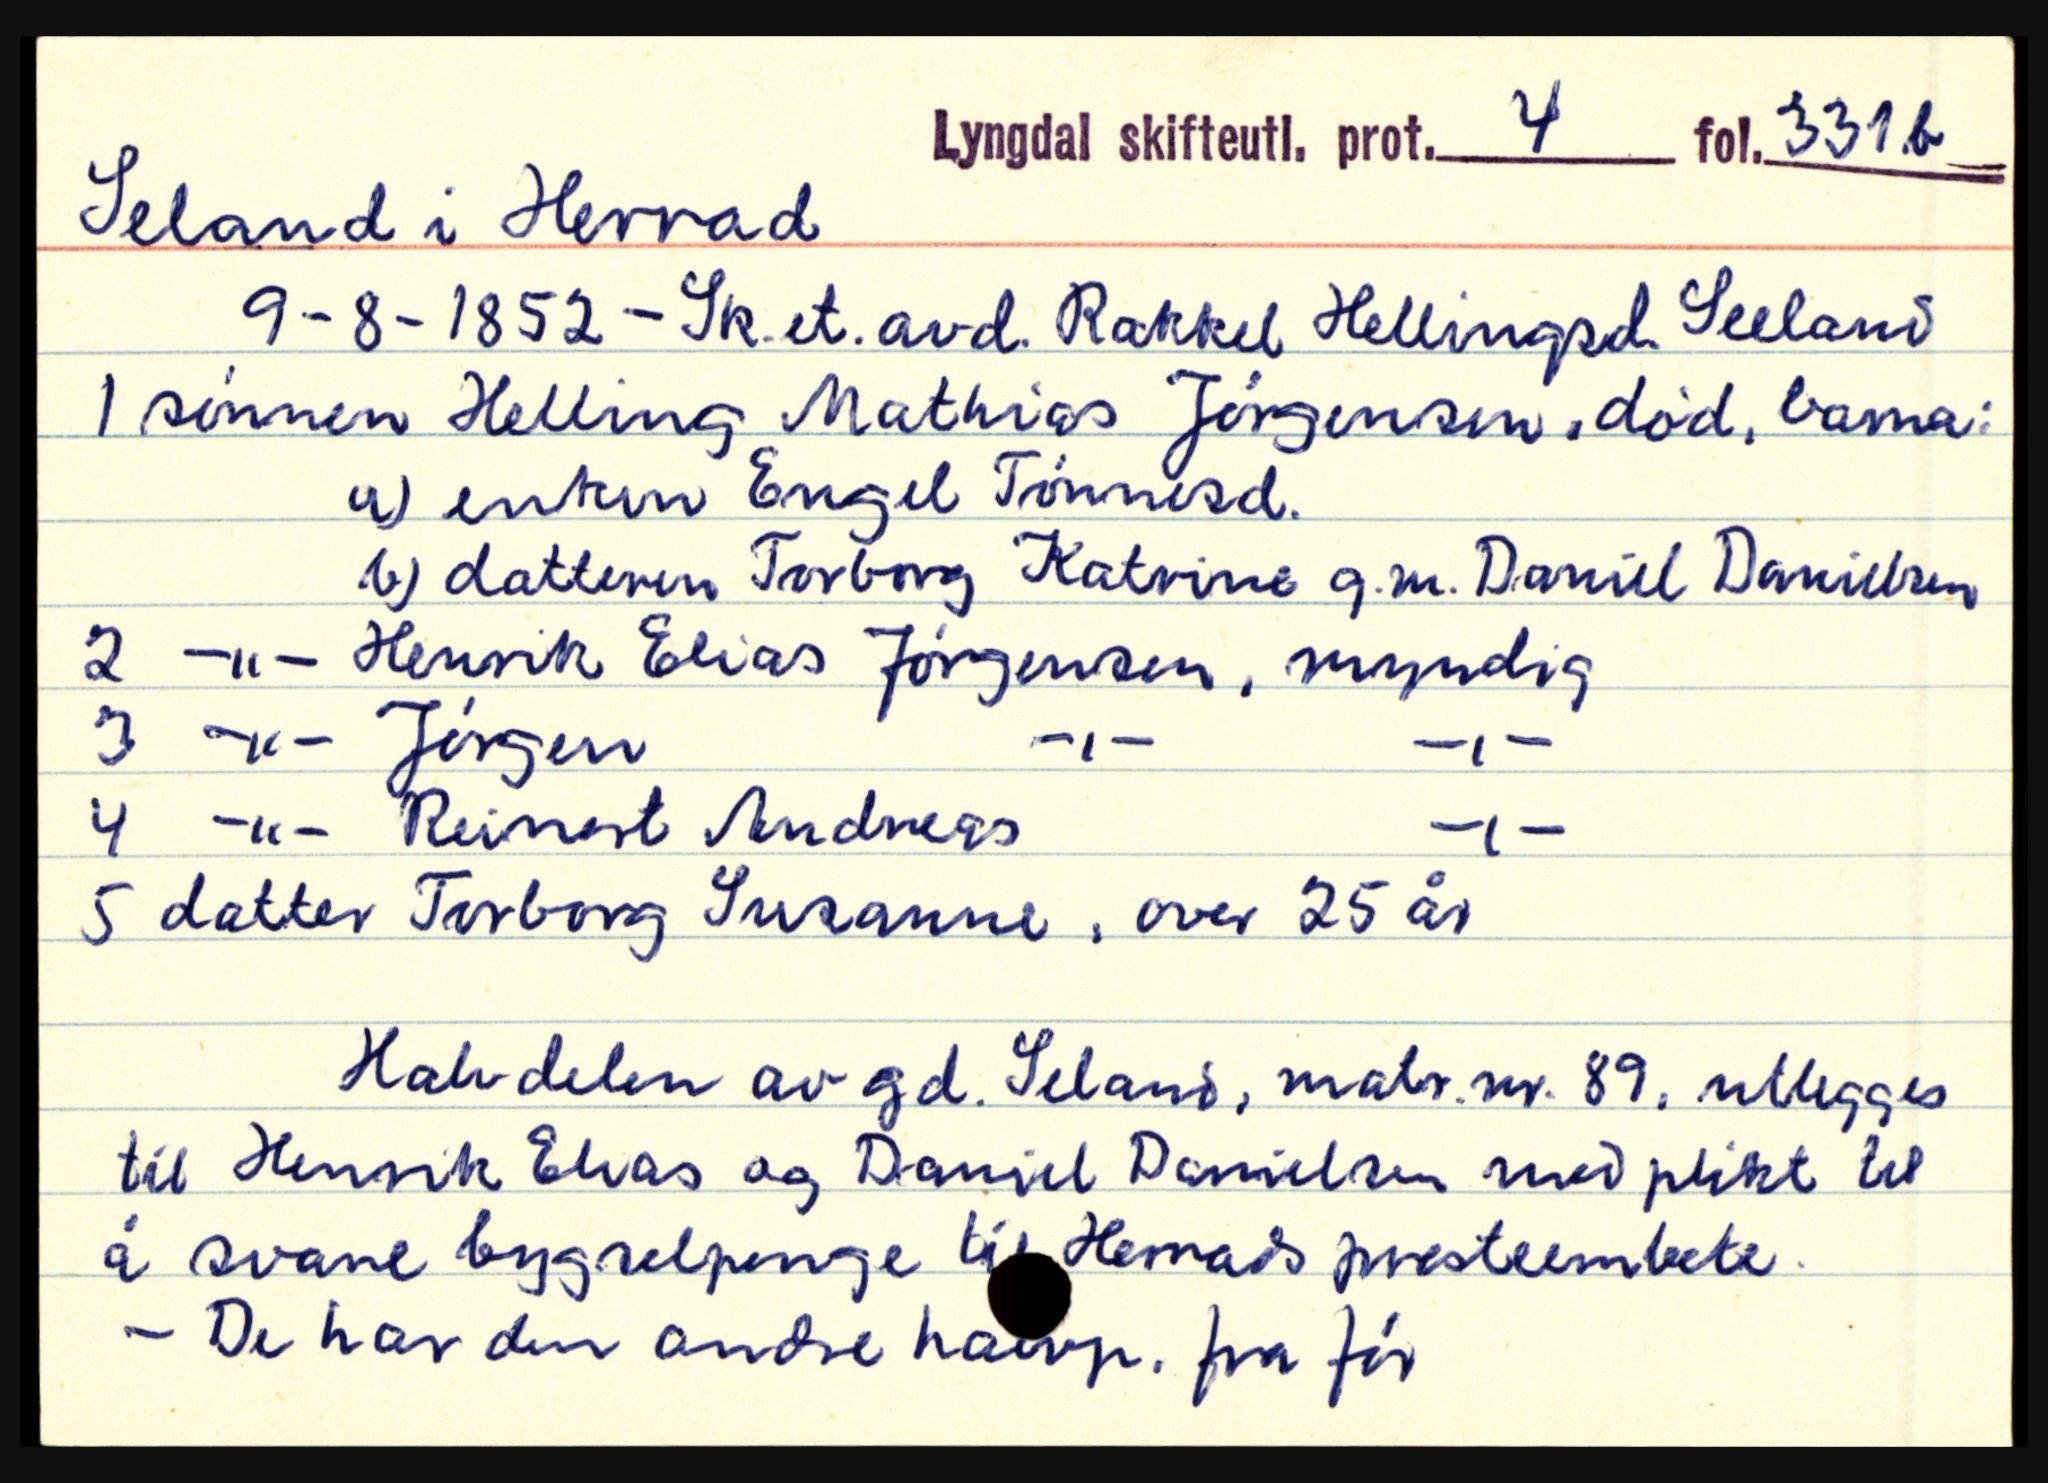 Lyngdal skifteutl. prot. 4 fol. 331.b
Seland i Herrad
9-8-1852 - Sk. et. avd. Rakkel Hellingsd. Seeland
1 sønnen Helling Mathias Jørgensen, død, barna:
a) enken Engel Tønnesd.
b) datteren Torborg Katrine g.m. Daniel Danielsen
2 -"- Henrik Elias Jørgensen, myndig
3 -"- Jørgen -"- -"-
4 -"- Reinert Andreas -"-
5 datter Torborg Susanne, over 25 år
Halvdelen av gd. Seland, matr. nr. 89, utlegges
til Henrik Elias og Daniel Danielsen med plikt til
å svare bygselpenge til Herrads presteembete.
- De har den andre halvp. fra før